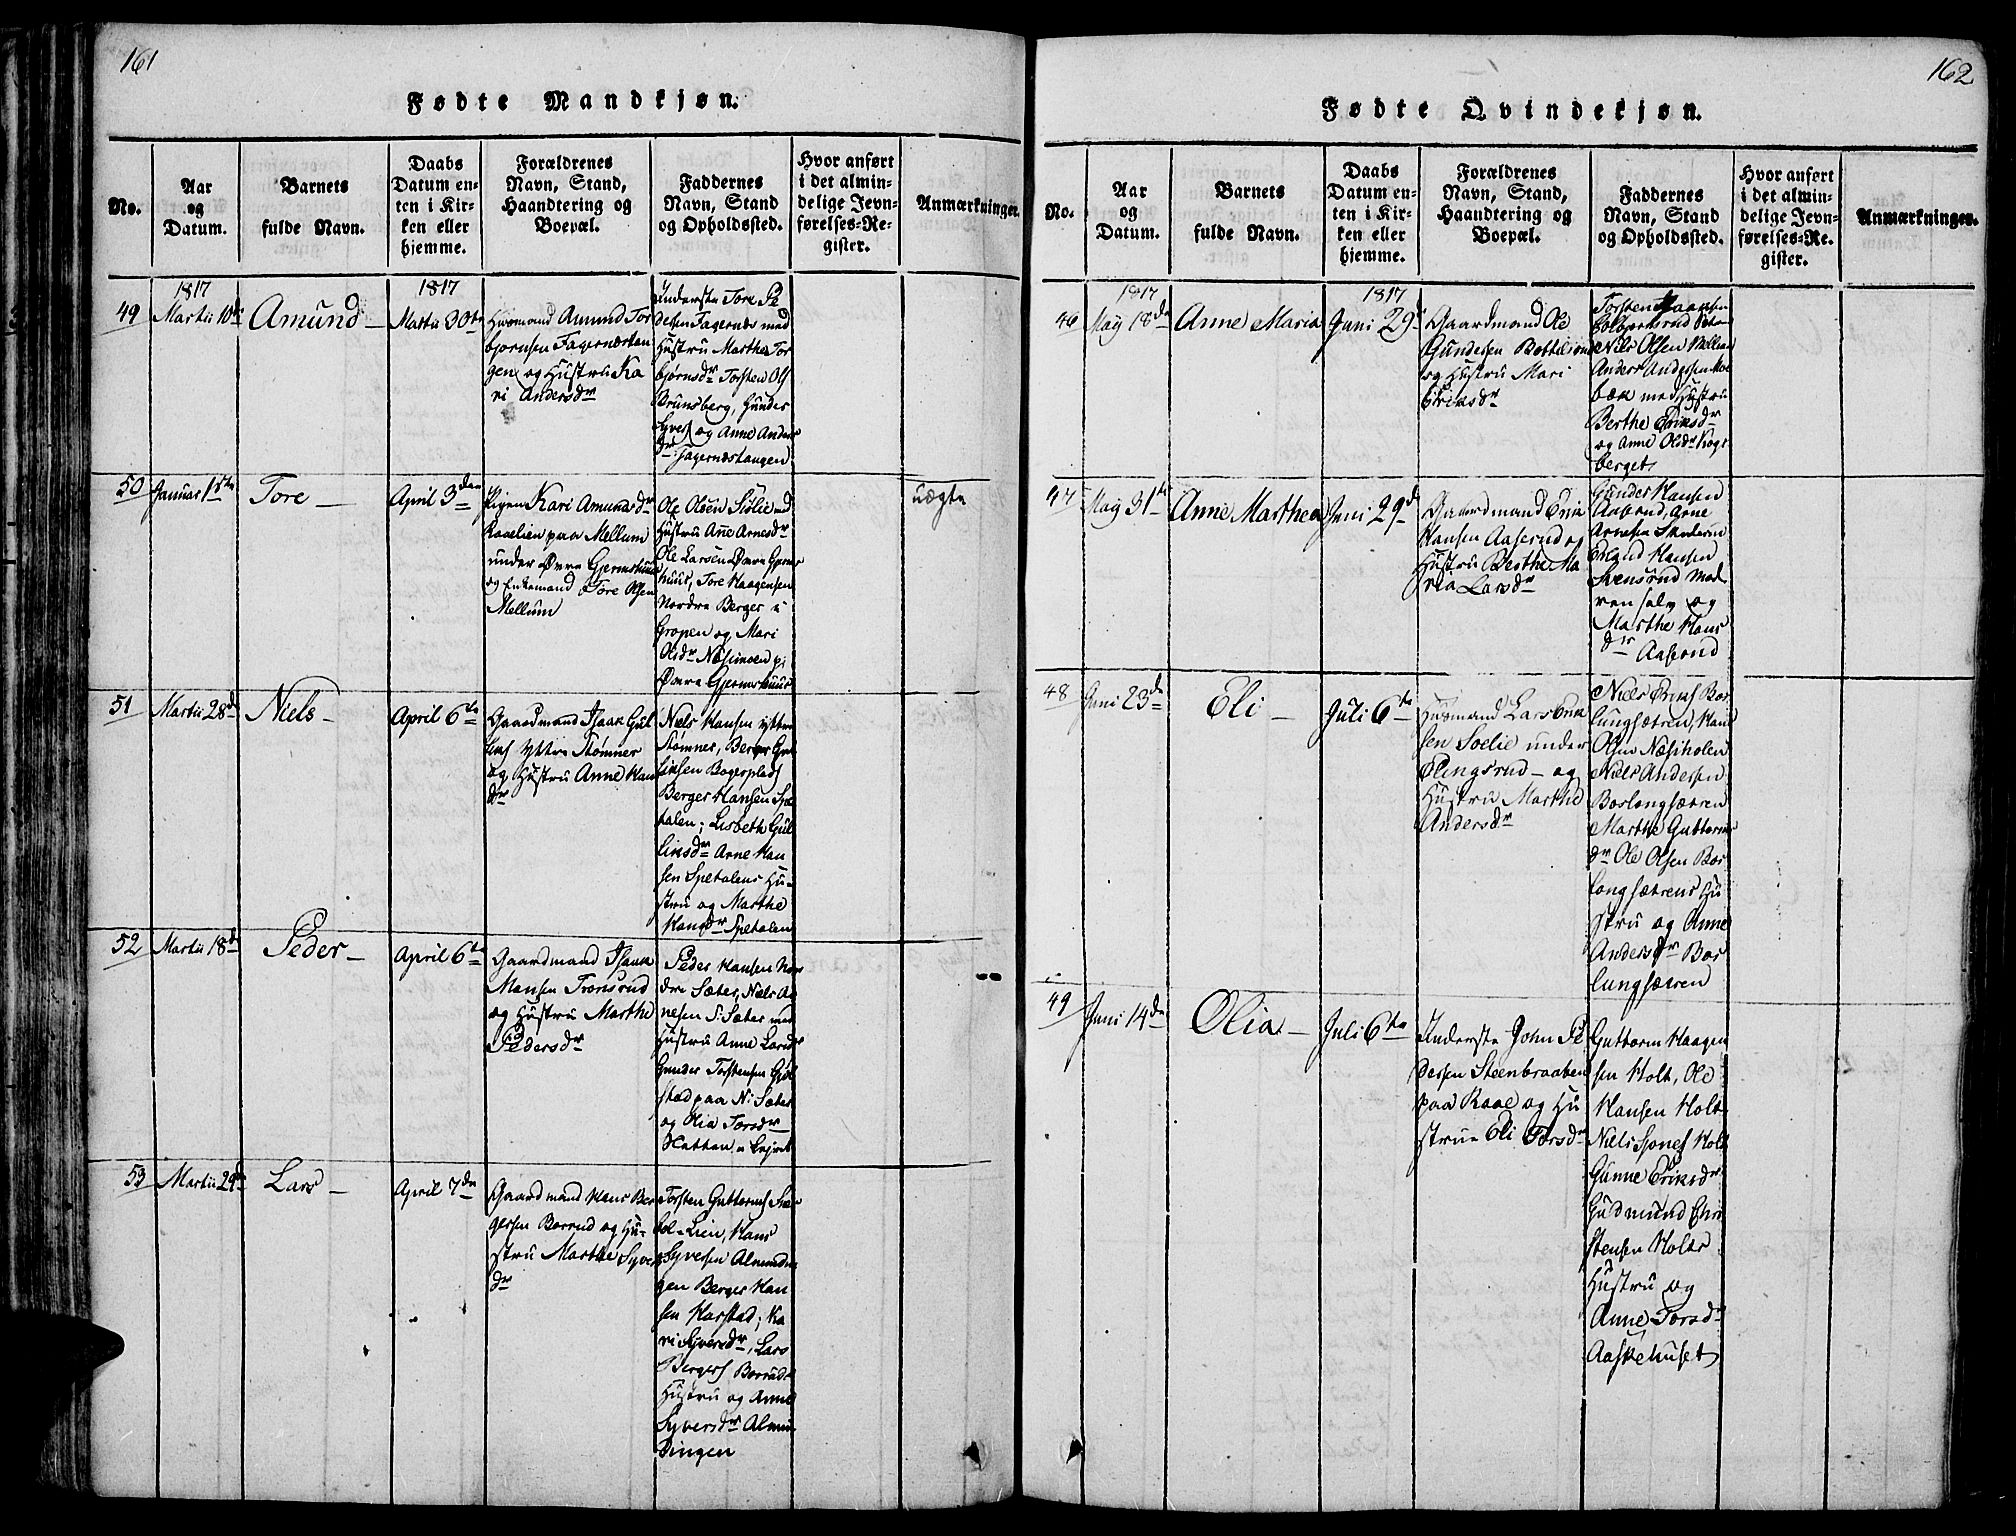 161
Fødte Mandkjøn.
No.
Aar
og
Datum.
Barnets
fulde Navn.
Daabs
Datum en-
ten i Kir-
ken eller
hjemme.
Forældrenes
Navn, Stand,
Haandtering og
Boepæl.
Faddernes
Navn, Stand
og Opholdssted.
Hvor anført
i det almin-
delige Jevn-
førelses-Re-
gister.
Anmærkninger.
49
1817
Martii 10de
Amund
1817
Martii 30te
Huusmand Amund Tor
bjørnsen Fagernæstan
gen og Hustru Ka
ri Andersdr
Inderste Tore Pe
dersen Fagernæs med
Hustru Marthe Tor
bjørnsdr Torsten Ols
Brunsberg, Gunder
Syvers og Anne Anders
dr Fagernæstangen
50
Januar 15te
Tore
April 3die
Pigen Kari Amundsdr
Raaelien paa Mellum
under Øvre Gjermshuus
og Enkemand Tore Olsen
Mellum
Ole Olsen Siølie med
Hustru Anne Arnesdr
Ole Larsen Øvre Gjerms
huus, Tore Haagensen
Nordre Berger i
Gropen og Mari
Olsdr Næsimoen pi
Øvre Gjermshuus
uægte
51
Martii 28de
Niels
April 6te
Gaardmand Isaak Gul
liks Yttre Stømner
og Hustru Anne Han
dr
Niels Hansen yttre
Stømner, Berger Gul
liksen Bogerplads
Berger Hansen Spe
talen; Lisbeth Gul
liksdr Arne Han
sen Spetalens Hu-
stru og Marthe
Hansdr Spetalen
52
Martii 18de
Peder
April 6te
Gaardmand Isaak
Hansen Tronsrud
og Hustru Marthe
Pedersdr
Peder Hansen Nor
dre Sæter, Niels Ar
nesen S: Sæter med
Hustru Anne Larsdr
Gunder Torstensen Gul
stad paa N: Sæter
og Olia Torsdr
Hatten
53
Martii 29de
Lars
April 7de
Gaardmand Hans Ber
gersen Borrud og Hu-
stru Marthe Syvers
dr
Torsten Guttorms
Lien, Hans
Syversen Almindin
gen Berger Han
sen Harstad; Ka
ri Syversdr, Lars
Bergers Borruds
Hustru og Anne
Syversdr Almin
dingen
162
Fødte Qvindekjøn.
No.
Aar
og
Datum.
Barnets
fulde Navn.
Daabs
Datum en-
ten i Kir-
ken eller
hjemme.
Forældrenes
Navn, Stand,
Haandtering og
Boepæl.
Faddernes
Navn, Stand
og Opholdssted.
Hvor anført
i det almin-
delige Jevn-
førelses-Re-
gister.
Anmærkninger.
46
1817
May 18de
Anne Maria
1817
Juni 29de
Gaardmand Ole
Gundersen
og Hustru Mari
Eriksdr
Torsten Haagensen
Niels Olsen Mellem
Anders Andersen Moe
bæk med Hustru
Berthe Eriksdr
og Anne Olsdr Kogs
berget
47
May 31te
Anne Marthea
Juni 29de
Gaardmand Erik
Hansen Aaserud og
Hustru Berthe Ma
ria Larsdr
Gunder Hansen
Aaserud, Arne
Arnesen
Erland Hansen
Svensrud Mod
ren selv og
Marthe Hans
dr Aaserud
48
Juni 23de
Eli
Juli 6te
Huusmand Lars Erik
sen Soelie under
Elingsrud og
Hustru Marthe
Andersdr
Niels Eriks Bor
lungsætren, Hans
Olsen Næsiholen
Niels Andersen
Borlongsætren
Marthe Guttorms
dr Ole Olsen Bor
longsætrens Hu
stru og Anne
Andersdr Bor
lungsætren
49
Juni 14de
Olia
Juli 6te
Inderste John Pe
dersen Steenbraaben
paa Raae og Hu
strue Eli Torsdr
Guttorm Haagen
sen Holt, Ole
Hansen Holt
Niels Jones Holt
Gunne Eriksdr
Gudmund Chri
stensen Holts
Hustru og
Anne Torsdr
Aaskehuset